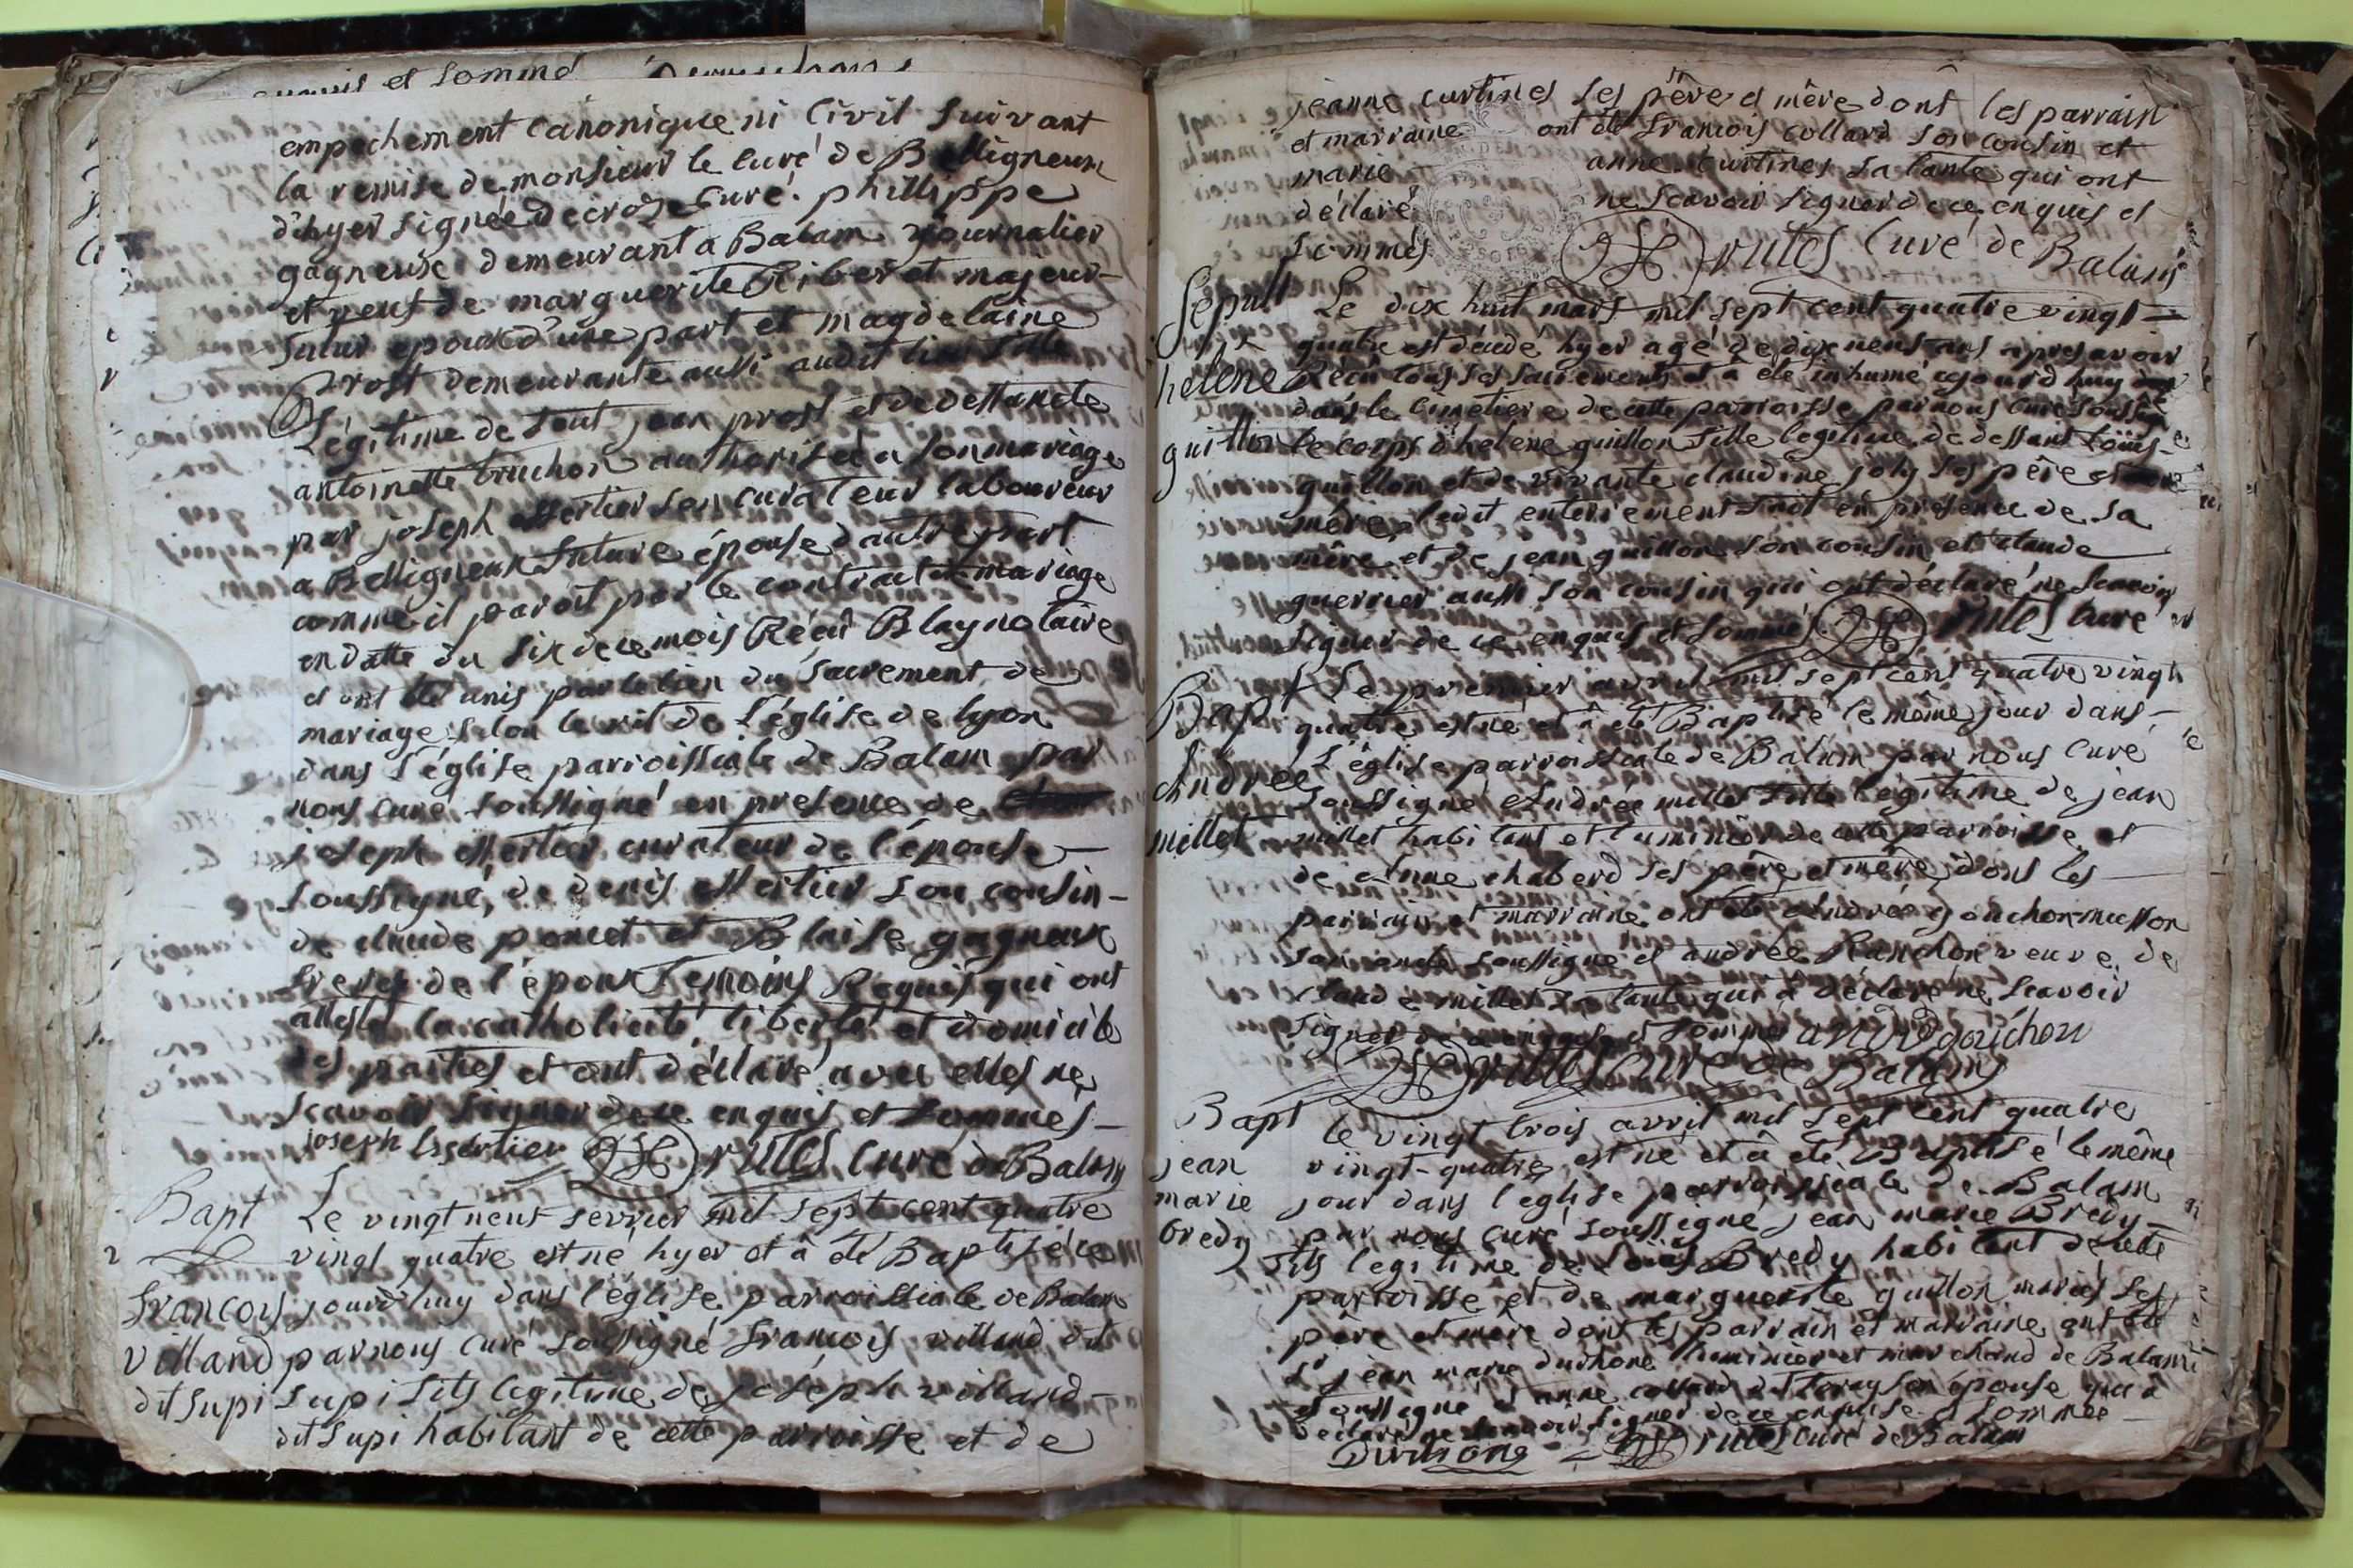 et sommé
empechement canonique ni Civil suivant
la remise de monsieur le curé de Belligneux
d'hyer signée decroze Curé. phillippe
gagneuse demeurant a Balam journalier
et veuf de marguerite Riber et majeur
futur epoux d'une part et magdelaine
Prost demeurante aussi audit lieu fille
Légitime de feut jean prost et de deffuncte
antoinette truchon authorisée a son mariage
par joseph essertier son curateur laboureur
a Belligneux future épouse d'autre part
comme il paroit par le contract de mariage
en datte du six de ce mois Récû Blay notaire
et ont été unis par le lien du Sacrement de
mariage selon le rit de l'église de lyon
dans l'église parroissiale de Balam par
nous curé soussigné en presence de
joseph essertier curateur de l'épouse
soussigné, de denis essertier son cousin
de claude poncet et Blaise gagneux
freres de l'époux temoins Requis qui ont
attesté la catholicité, liberté et domicile
des parties et ont déclaré avec elles ne
scavoir signer de ce enquis et sommés
joseph Essertier rutes Curé de Balam
Bapt Le vingt neuf fevrier mil sept cent quatre
vingt quatre est né hyer et à été Baptisé ce
francois jourd'huy dans l'église parroissiale de Balam
villand par nous curé soussigné francois villand dit
dit supi supi fils legitime de joseph villand
dit supi habitant de cette parroisse et de
jeanne curtines ses père et mère dont les parrain
et marraine ont été francois collard son cousin et
marie anne curtines sa tante qui ont
déclaré ne scavoir signer de ce enquis et
sommés rutes Curé de Balam
Sepult Le dix huit mars mil sept cent quatre vingt
quatre est décédé hyer agé de dix neuf ans apres avoir
helene Récû tous ses sacrements et a été inhumé cejourd'huy
dans le cimetiere de cette parroisse par nous curé soussigné
guillon le corps d'helene guillon fille legitime de deffunt loüis
guillon et de vivante claudine joly ses père et
mère, ledit enterrement fait en presence de sa
mère et de jean guillon son cousin et claude
guerrier aussi son cousin qui ont déclaré ne scavoir
signer de ce enquis et sommés rutes curé
Bapt Le premier avril mil sept cent quatre vingt
quatre est né et à été Baptisé le même jour dans
l'église parroissiale de Balam par nous Curé
Andrée soussigné Andrée millet fille légitime de jean
millet millet habitant et luminier de cette parroisse et
de Anne chaberd ses père et mère dont les
parrain et marraine ont été andré gonchon
son oncle soussigné et andrée Ranchon veuve de
claude millet sa tante qui a déclaré ne scavoir
signer de ce enquise et sommée andré gonchon
rutes Curé de Balam
Bapt le vingt trois avril mil sept cent quatre
jean vingt-quatre est né et à été Baptisé le même
marie jour dans l'eglise parroissiale de Balam
bredy par nous curé soussigné jean marie Bredy
fils legitime de Loüis Bredy habitant de cette
parroisse et de marguerite guillon mariés ses
père et mère dont les parrain et marraine ont été
Sr jean marie durhone luminier et marchand de Balam
soussigné et anne collard son épouse qui a
déclaré ne scavoir signer de ce enquise et sommée
Durhone rutes curé de Balam